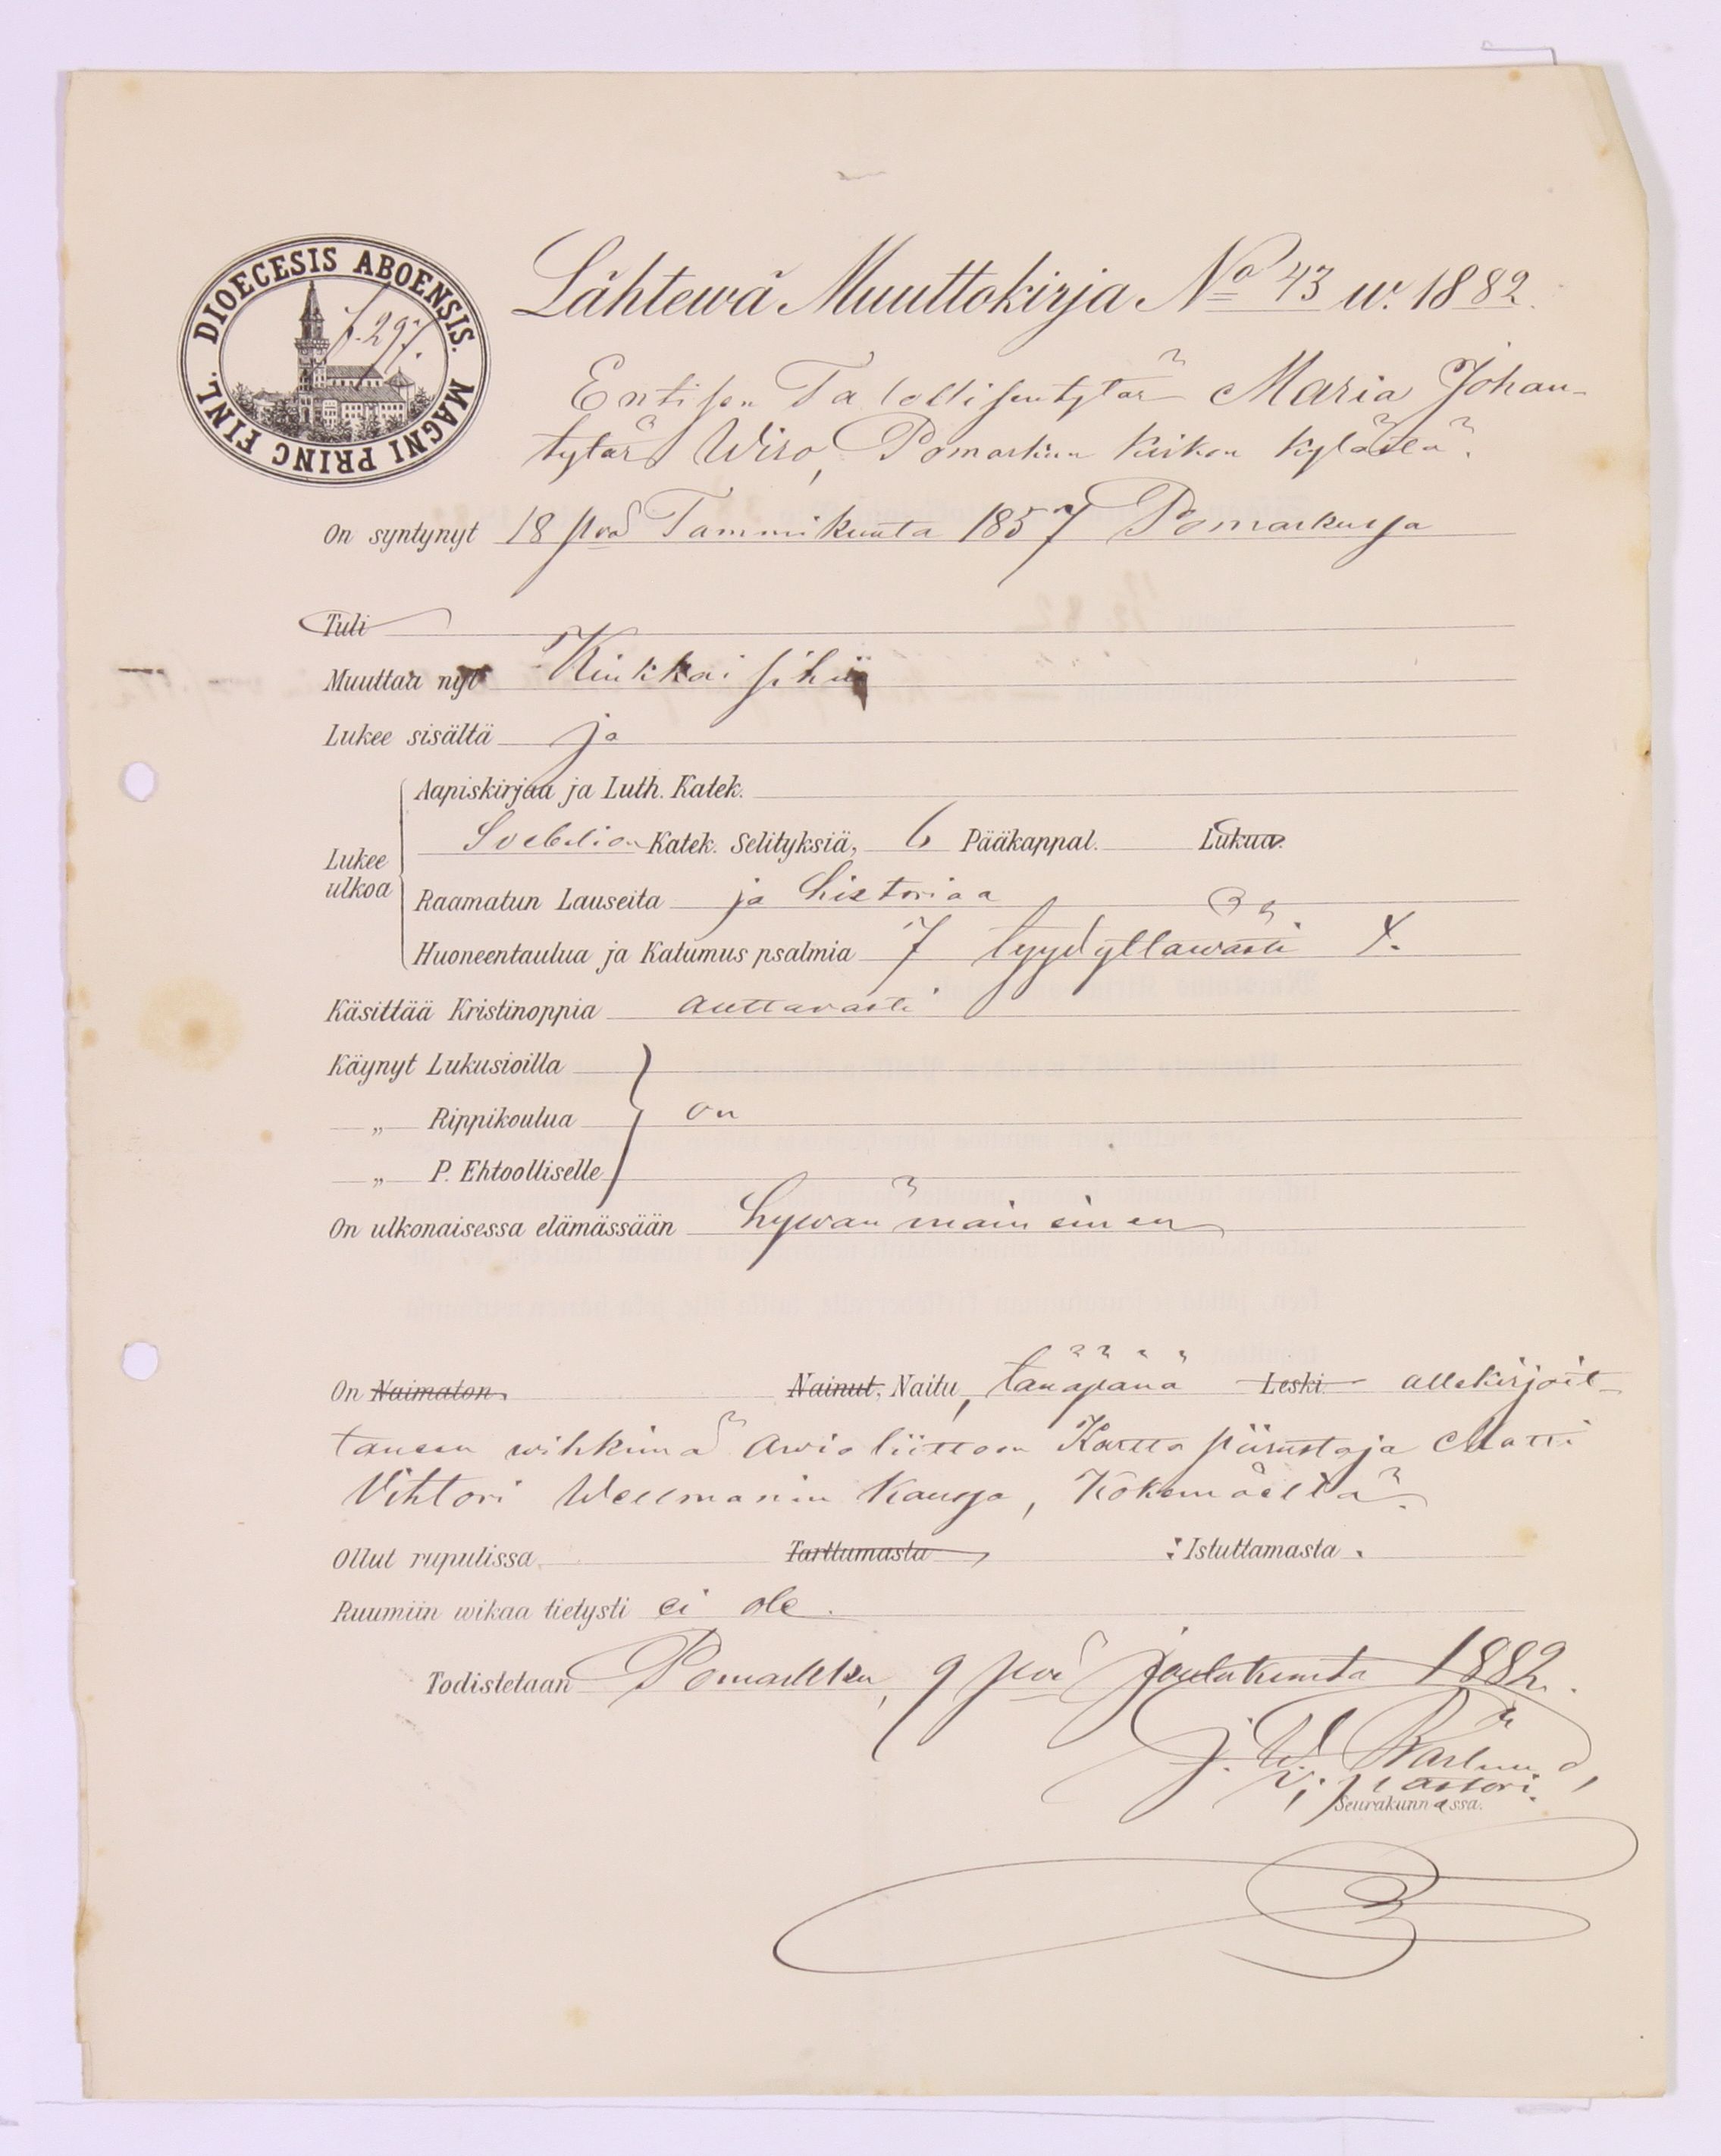 DIOECESIS ABOENSIS. MAGNI PRINC FINL.
f. 297.
Lähtewä Muuttokirja No 43 w. 1882.
Entisen Talollisentytär Maria Johan-
tytär Wiro, Pomarkun kirkon kylästä.
On syntynyt 18 pvä Tammikuuta 1857 Pomarkussa
Tuli
Muuttaa nyt Kiukkaisihi
Lukee sisältä ja
Aapiskirjaa ja Luth. Katek.
Lukee ulkoa
Svebelion Katek. Selityksiä, 6 Pääkappal. Lukua.
Raamatun Lauseita ja historiaa
Huoneentaulua ja Katumus psalmia 7 tyydyttäwästi
Käsittää Kristinoppia auttavasti
Käynyt Lukusioilla
„ Rippikoulua on
„ P. Ehtoolliselle
On ulkonaisessa elämässään hywän maineinen
On Naimaton. Nainut, Naitu, tänäpänä Leski allekirjoit-
taneen wihkimä awioliittoon Kartta piirustaja Matti
Vihtori Wellmanin kanssa, Kokemäeltä.
Ollut rupulissa Tarttumasta : Istuttamasta .
Ruumiin wikaa tietysti ei ole.
Todistetaan Pomarkku, 9 pvä joulukuuta 1882.
J. W.
v. pastori.
Seurakunnassa.